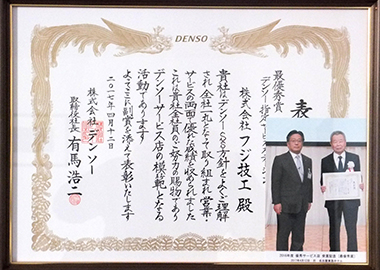 DENSO
表
最優秀賞
株式会社 フジ技工 殿
貴社はデンソーSS方針をよく理解
され 全社一丸となって取り組まれ 営業・
サービスの両面で優れた成績を収められました
これは貴社全社員のご努力の賜物であり
デンソーサービス店の模範となる
活動であります
よってここに副賞を添えて表彰いたします
二〇一七年四月十二日
株式会社 デンソー
取締役社長 有馬浩二